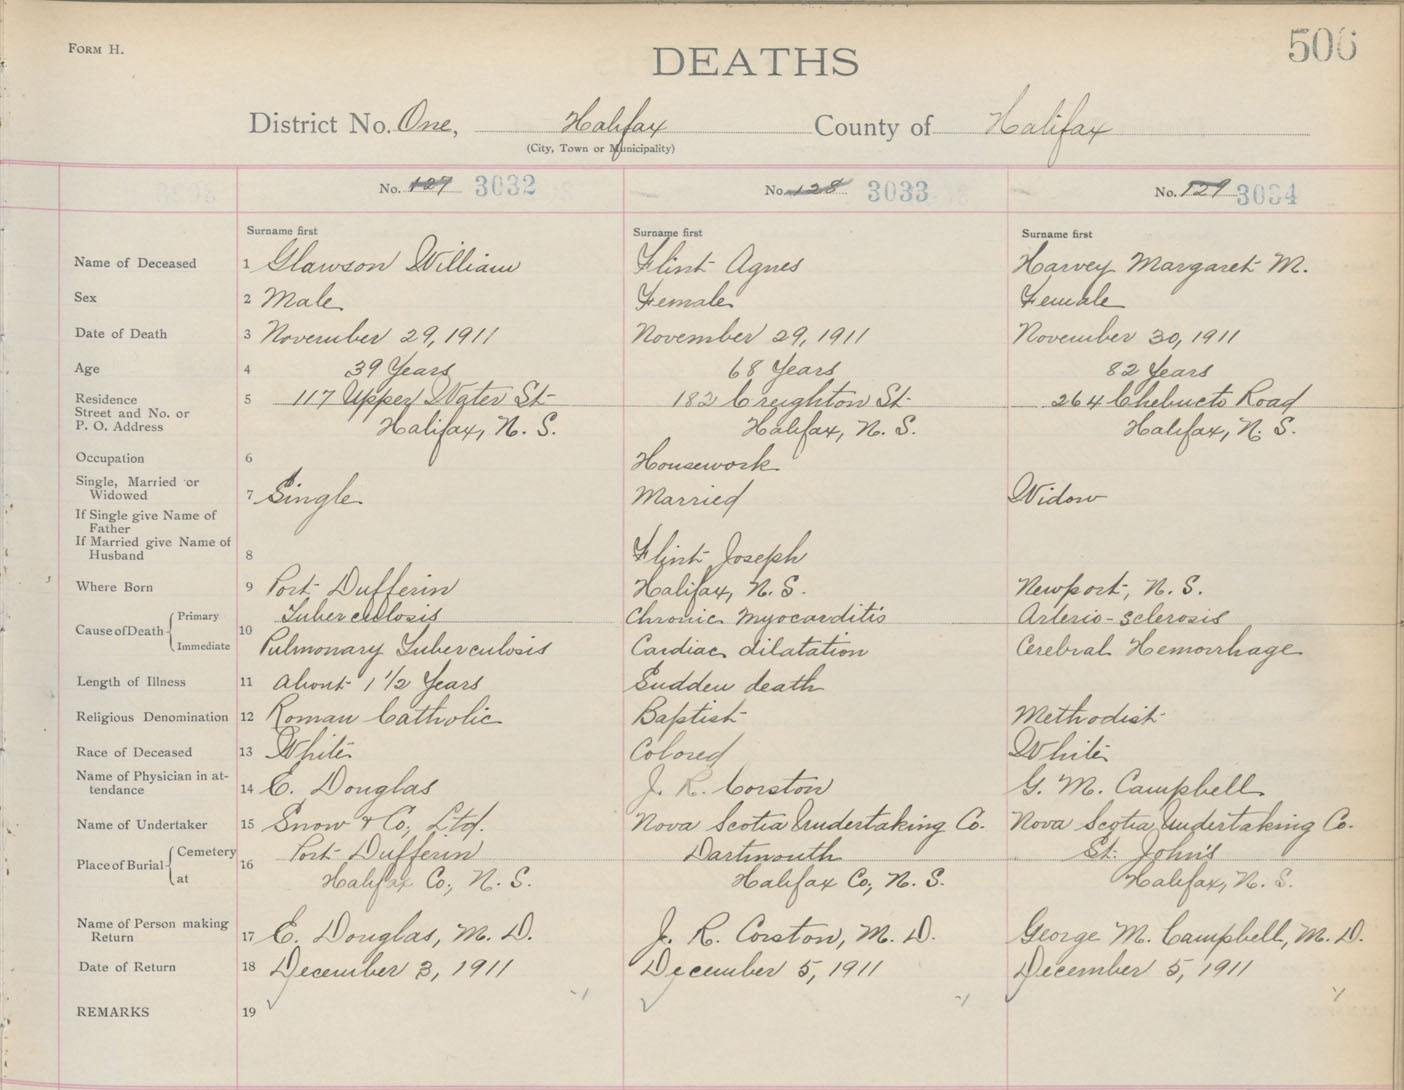 FORM H.
506
DEATHS
District No. One, Halifax County of Halifax
(City, Town or Municipality)
No. 127 3032 No. 128 3033 No. 129 3034
Surname first Surname first Surname first
Name of Deceased 1 Glawson William Flint Agnes Harvey Margaret M.
Sex 2 Male Female Female
Date of Death 3 November 29, 1911 November 29, 1911 November 30, 1911
Age 4 39 Years 68 Years 82 Years
Residence 5 117 Upper Water St. 182 Creighton St. 264 Chebucto Road
Street and No. or
P. O. Address Halifax, N. S. Halifax, N. S. Halifax, N. S.
Occupation 6 Housework
Single, Married or
Widowed 7 Single Married Widow
If Single give Name of
Father
If Married give Name of
Husband 8 Flint Joseph
Where Born 9 Port Dufferin Halifax, N. S. Newport, N. S.
Primary Tuberculosis Chronic Myocarditis Arterio-sclerosis
Cause of Death 10
Immediate Pulmonary Tuberculosis Cardiac dilatation Cerebral Hemorrhage
Length of Illness 11 About 1 1/2 Years Sudden death
Religious Denomination 12 Roman Catholic Baptist Methodist
Race of Deceased 13 White Colored White
Name of Physician in at-
tendance 14 E. Douglas J. R. Corston G. M. Campbell
Name of Undertaker 15 Snow & Co., Ltd. Nova Scotia Undertaking Co. Nova Scotia Undertaking Co.
Cemetery Port Dufferin Dartmouth St. John's
Place of Burial 16
at Halifax Co., N. S. Halifax Co., N. S. Halifax, N. S.
Name of Person making
Return 17 E. Douglas, M. D. J. R. Corston, M. D. George M. Campbell, M. D.
Date of Return 18 December 3, 1911 December 5, 1911 December 5, 1911
REMARKS 19